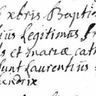 xbris Baptiz
ius legitimus J
is et mariæ cath
sunt laurentius
endrix